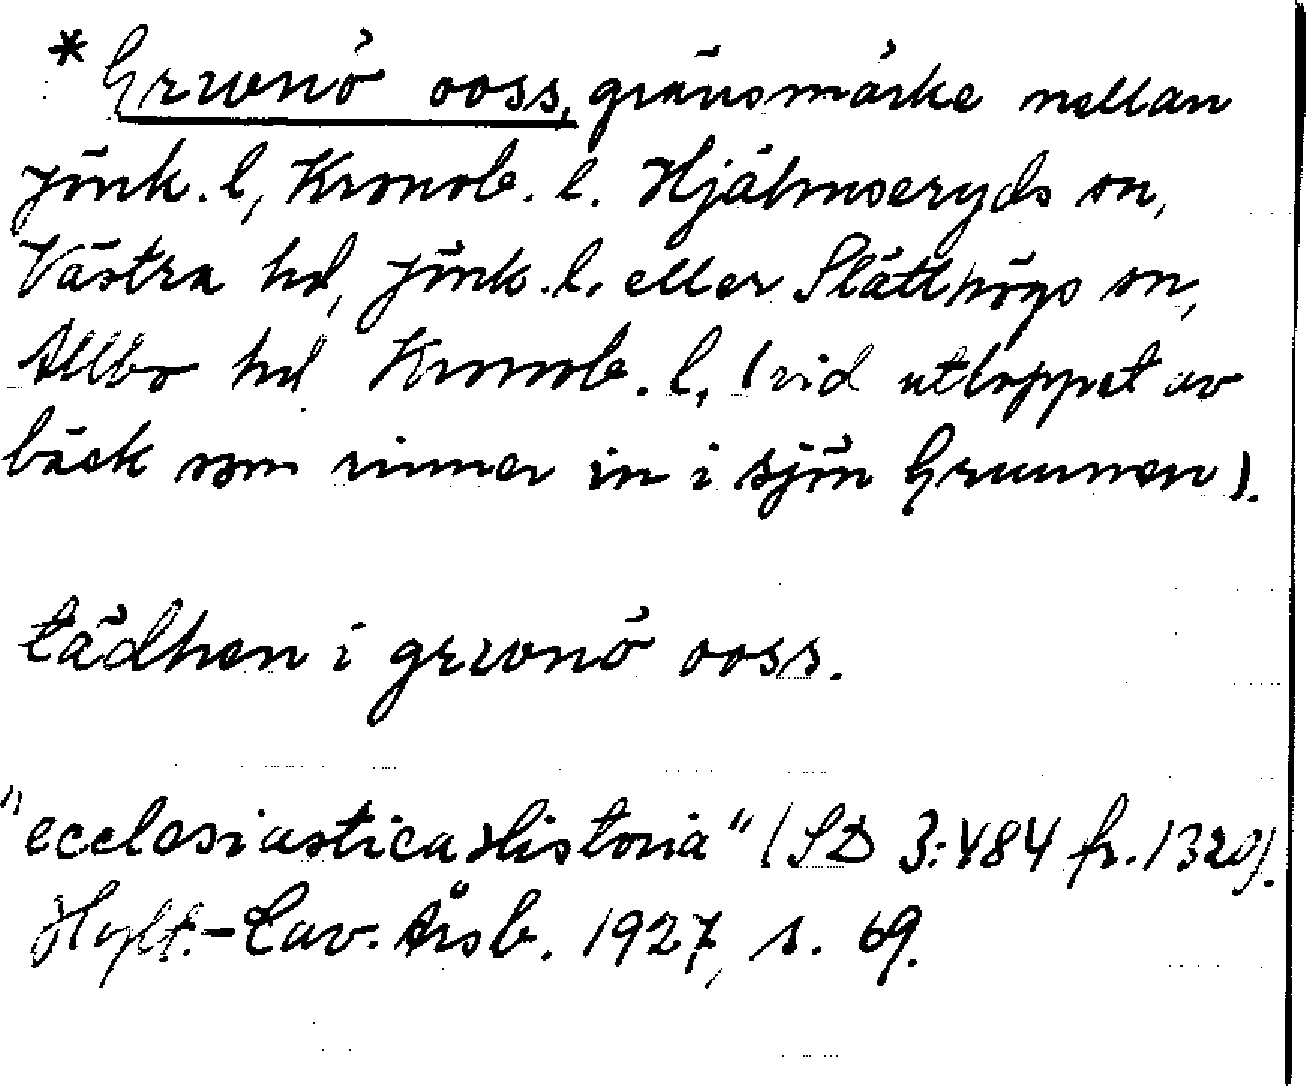 * Grwnö ooss, gränsmärke mellan
Jönk. l, Kronob. l. Hjälmseryds sn,
Västra hd, Jönk. l. eller Slätthögs sn,
Allbo hd Kronob. l, (vid utloppet av
bäck som rinner in i sjön Grunnen).
tädhen i grwnö ooss.
"ecclesiastica Historia" (SD 3:484 fr. 1320).
Hylt.-Cav. Årsb. 1927, s. 69.